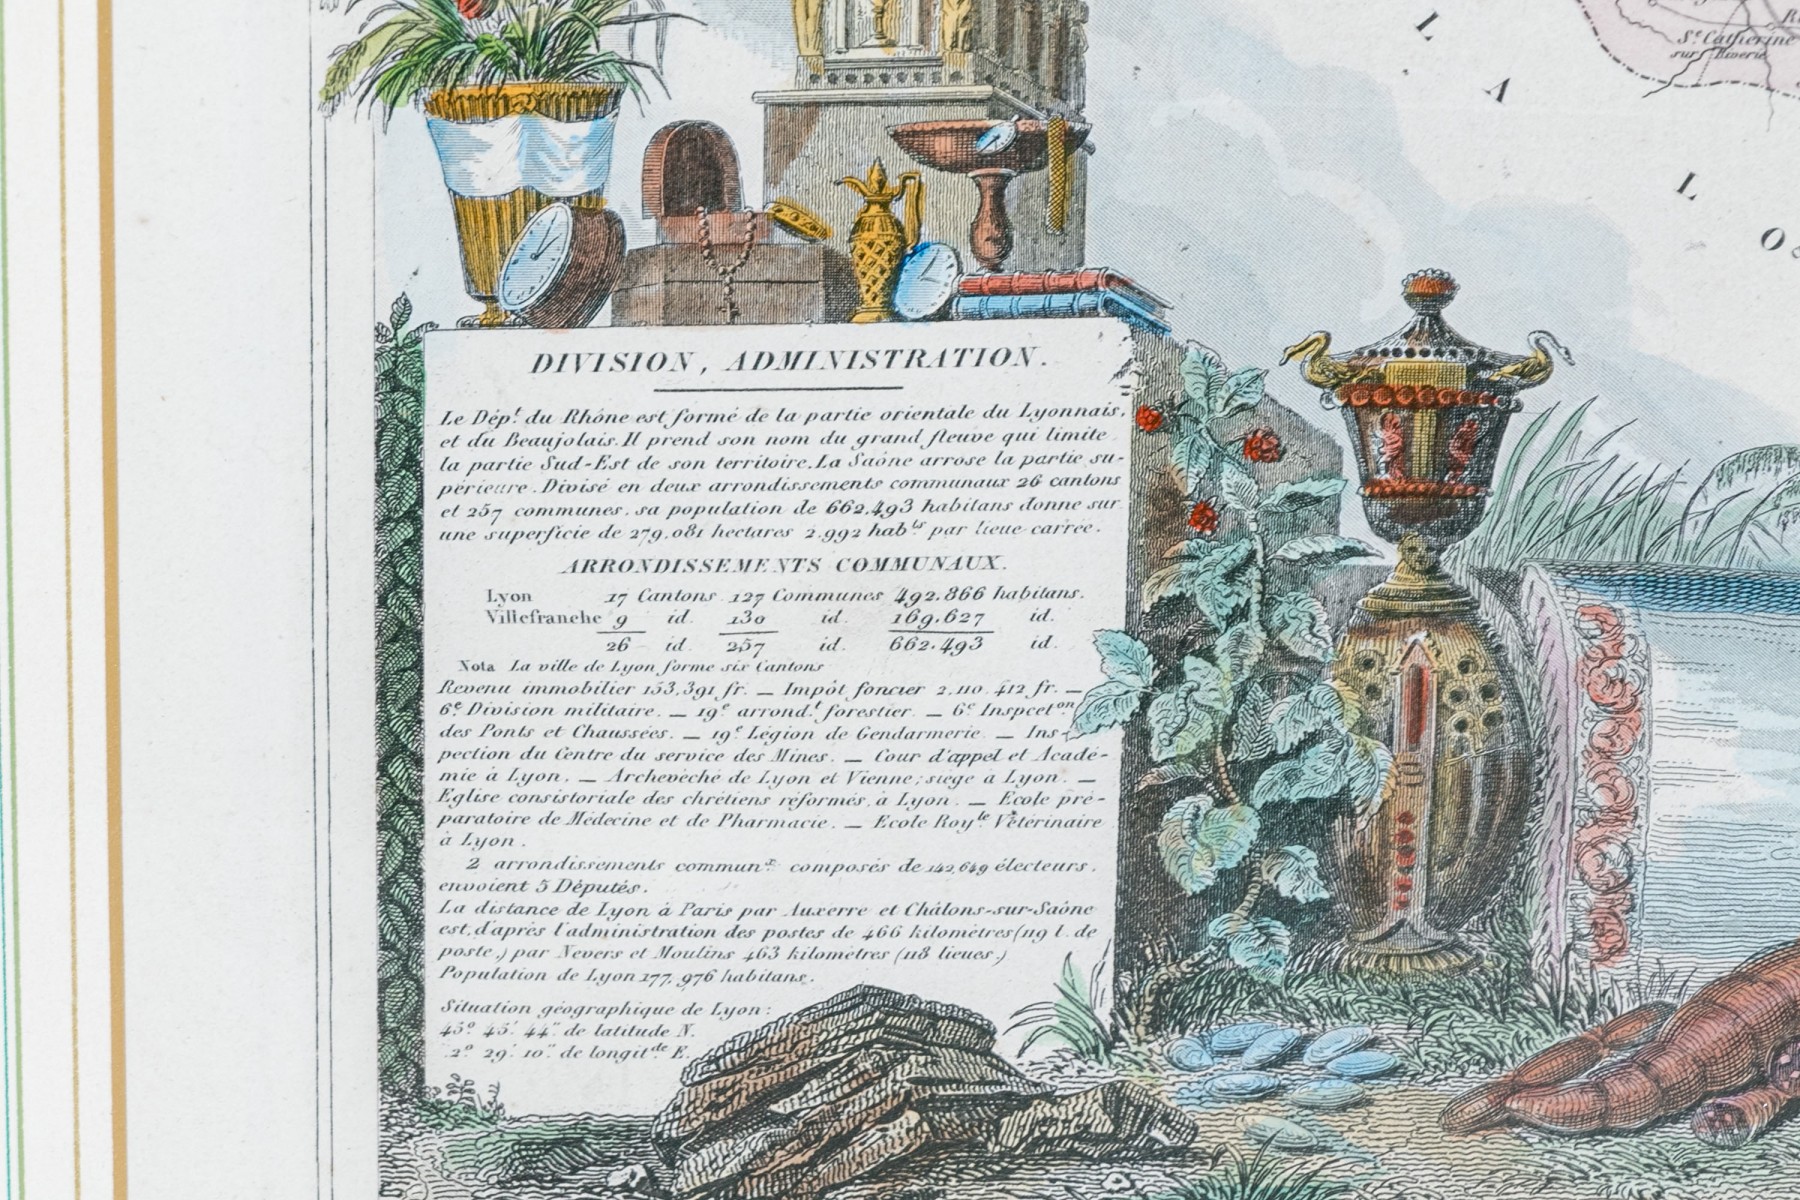 St. Catherine
sur Riverie
L
A
L
DIVISION, ADMINISTRATION.
Le Dépt. du Rhône est formé de la partie orientale du Lyonnais,
et du Beaujolais. Il prend son nom du grand fleuve qui limite
la partie Sud-Est de son territoire. La Saône arrose la partie su-
périeure. Divisé en deux arrondissements communaux 26 cantons
et 257 communes, sa population de 662.493 habitans donne sur
une superficie de 279.081 hectares 2.992 habts par lieue carrée.
ARRONDISSEMENTS COMMUNAUX.
Lyon 17 Cantons 127 Communes 492.866 habitans.
Villefranche 9 id. 130 id. 169.627 id.
26 id. 257 id. 662.493 id.
Nota La ville de Lyon forme six Cantons
Revenu immobilier 153,391 fr. — Impôt foncier 2.110.412 fr. —
6e. Division militaire. — 19e arrondt. forestier. — 6e Inspcet.on
des Ponts et Chaussées. — 19e Légion de Gendarmerie. — Ins-
pection du Centre du service des Mines. — Cour d'appel et Acadé-
mie à Lyon. — Archevêché de Lyon et Vienne; siège à Lyon. —
Eglise consistoriale des chrétiens réformés, à Lyon. — Ecole pré-
paratoire de Médecine et de Pharmacie. — Ecole Royle. Vétérinaire
à Lyon.
2 arrondissements communx. composés de 142,649 électeurs,
envoient 5 Députés.
La distance de Lyon à Paris par Auxerre et Châlons-sur-Saône
est, d'après l'administration des postes de 466 kilomètres (119 l. de
poste,) par Nevers et Moulins 463 kilomètres (118 lieues.)
Population de Lyon 177,976 habitans.
Situation géographique de Lyon:
45°. 45'. 44". de latitude N.
2°. 29'. 10". de longitde E.